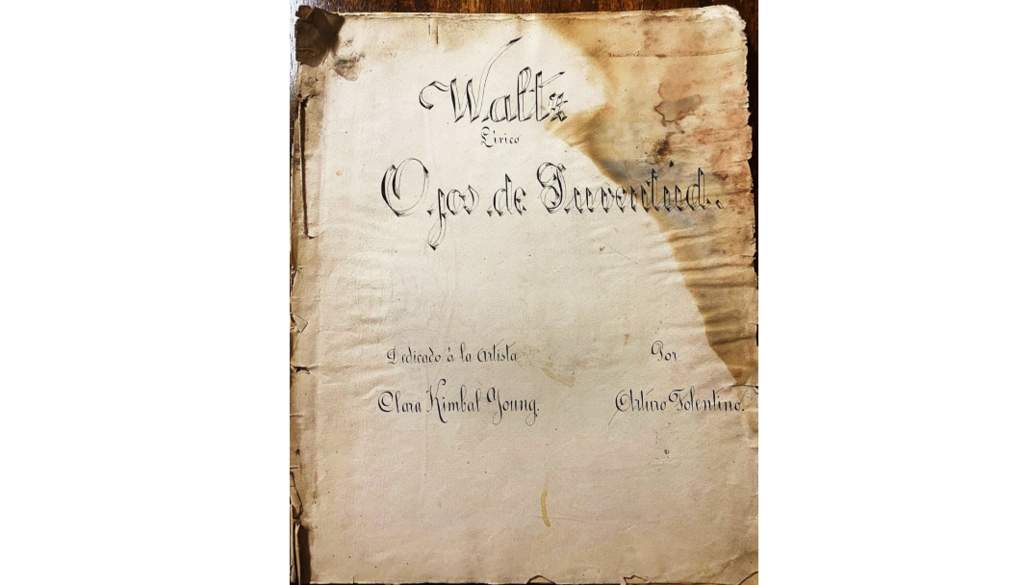 Waltz
Lírico
Ojos de Juventud.
Dedicado à la Artista
Por
Clara Kimbal Young.
Arturo Tolentino.